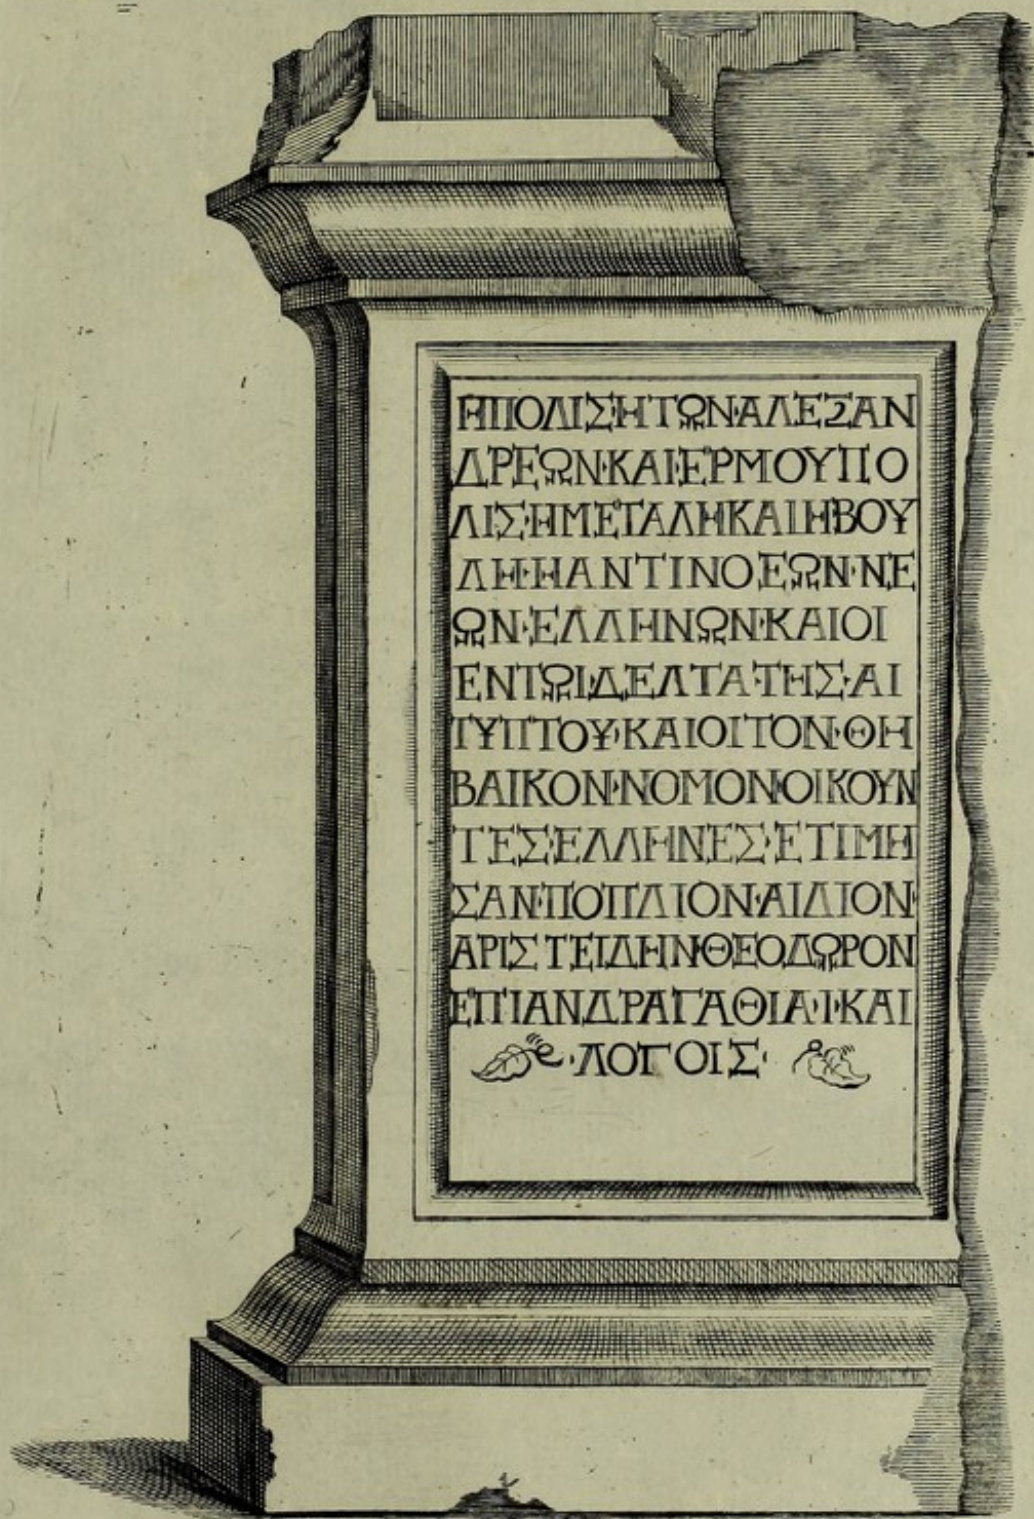 Η·ΠΟΛΙΣ·Η·ΤΩΝ·ΑΛΕΞΑΝ
ΔΡΕΩΝ·ΚΑΙ·ΕΡΜΟΥΠΟ
ΛΙΣ·Η·ΜΕΓΑΛΗ·ΚΑΙ·Η·ΒΟΥ
ΛΗ·Η·ΑΝΤΙΝΟΕΩΝ·ΝΕ
ΩΝ·ΕΛΛΗΝΩΝ·ΚΑΙ ΟΙ
ΕΝ ΤΩΙ·ΔΕΛΤΑ·ΤΗΣ·ΑΙ
ΓΥΠΤΟΥ·ΚΑΙ ΟΙ ΤΟΝ·ΘΗ
ΒΑΙΚΟΝ·ΝΟΜΟΝ·ΟΙΚΟΥΝ
ΤΕΣ·ΕΛΛΗΝΕΣ·ΕΤΙΜΗ
ΣΑΝ·ΠΟΠΛΙΟΝ·ΑΙΛΙΟΝ·
ΑΡΙΣΤΕΙΔΗΝ·ΘΕΟΔΩΡΟΝ
ΕΠΙ ΑΝΔΡΑΓΑΘΙΑ·Ι·ΚΑΙ
·ΛΟΓΟΙΣ·